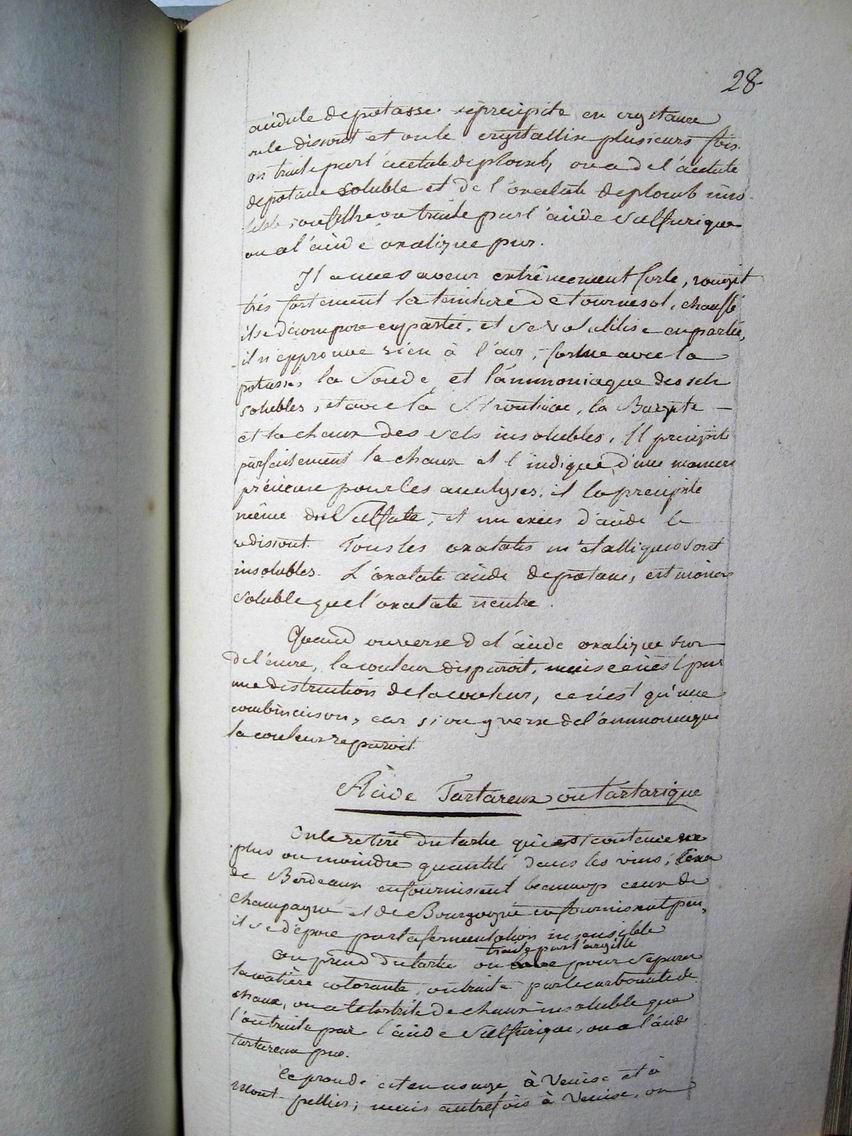 28
acidule de potasse se précipite en crystaux
on le dissout et on le crystallise plusieurs fois.
on traite par l'acetate de plomb, on a de l'acetate
de potasse soluble et de l'oxalate de plomb inso-
luble, on filtre on traite par l'acide sulfurique
on a l'acide oxalique pur.
Il a une saveur extrêmement forte, rougit
trés fortement la teinture de tournesol, chauffé
il se décompose en partie, et se volatilise en partie,
il n'epprouve rien à l'air, forme avec la
potasse, la Soude, et l'ammoniaque des sels
solubles, et avec la Strontiane, la Baryte —
et la chaux des sels insolubles. Il précipite
parfaitement la chaux et l'indique d'une maniere
précieuse pour les analyses, il la précipite
même du Sulfate, et un exces d'acide le
redissout. Tous les oxalates métalliques sont
insolubles. L'oxalate acide de potasse, est moins
soluble que l'oxalate neutre.
Quand on verse de l'acide oxalique sur
de l'encre, la couleur disparoit, mais ce n'est pas
une destruction de la couleur, ce n'est qu'une
combinaison, car si on y verse de l'ammoniaque
la couleur reparoit.
Acide Tartareux ou tartarique
On le retire du tartre qui est contenu en
plus ou moindre quantité dans les vins, ceux
de Bordeaux en fournissent beaucoup ceux de
Champagne et de Bourgogne en fournissent peu,
il se dépose par la fermentation insensible
traite par l'argille
on prend du tartre on pour séparer
la matière colorante, on traite par le carbonate de
chaux, on a le tartrite de chaux insoluble que
l'on traite par l'acide sulfurique, on a l'acide
tartareux pur.
Ce procédé est en usage à Venise et à
Montpellier; mais autrefois à Venise, on